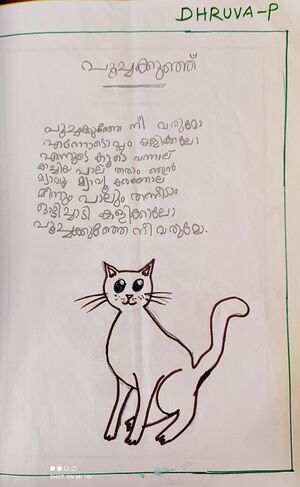 DHRUVA-P
പൂച്ചക്കുഞ്ഞ്
പൂച്ചക്കുഞ്ഞേ നീ വരുമോ
എന്നോടൊപ്പം കളിക്കാലോ
എന്നുടെ കൂടെ വന്നാല്
കാച്ചിയ പാല് തരാം ഞാൻ
മ്യാവൂ മ്യാവൂ കരഞ്ഞാല്
മീനും പാലും തന്നീടാം
ഓടിച്ചാടി കളിക്കാലോ
പൂച്ചക്കുഞ്ഞേ നീ വരുമോ.
SHOT ON MI 10I